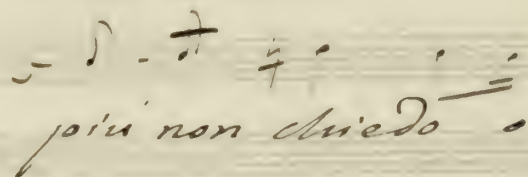 più non chiedo o